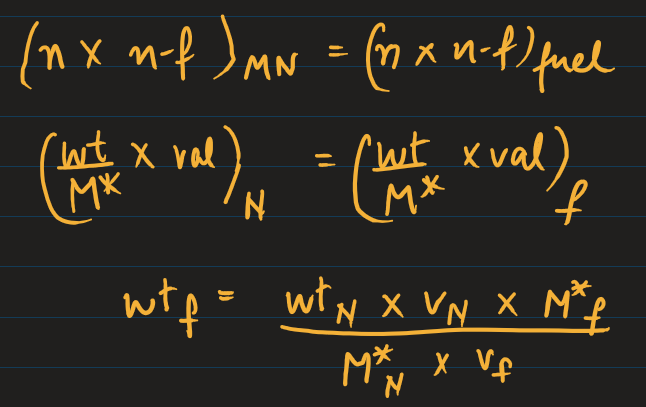 (n × n-f)MN = (n × n-f)fuel
(wt/M* × val)N = (wt/M* × val)f
wtf = wtN × vN × M*f / M*N × vf